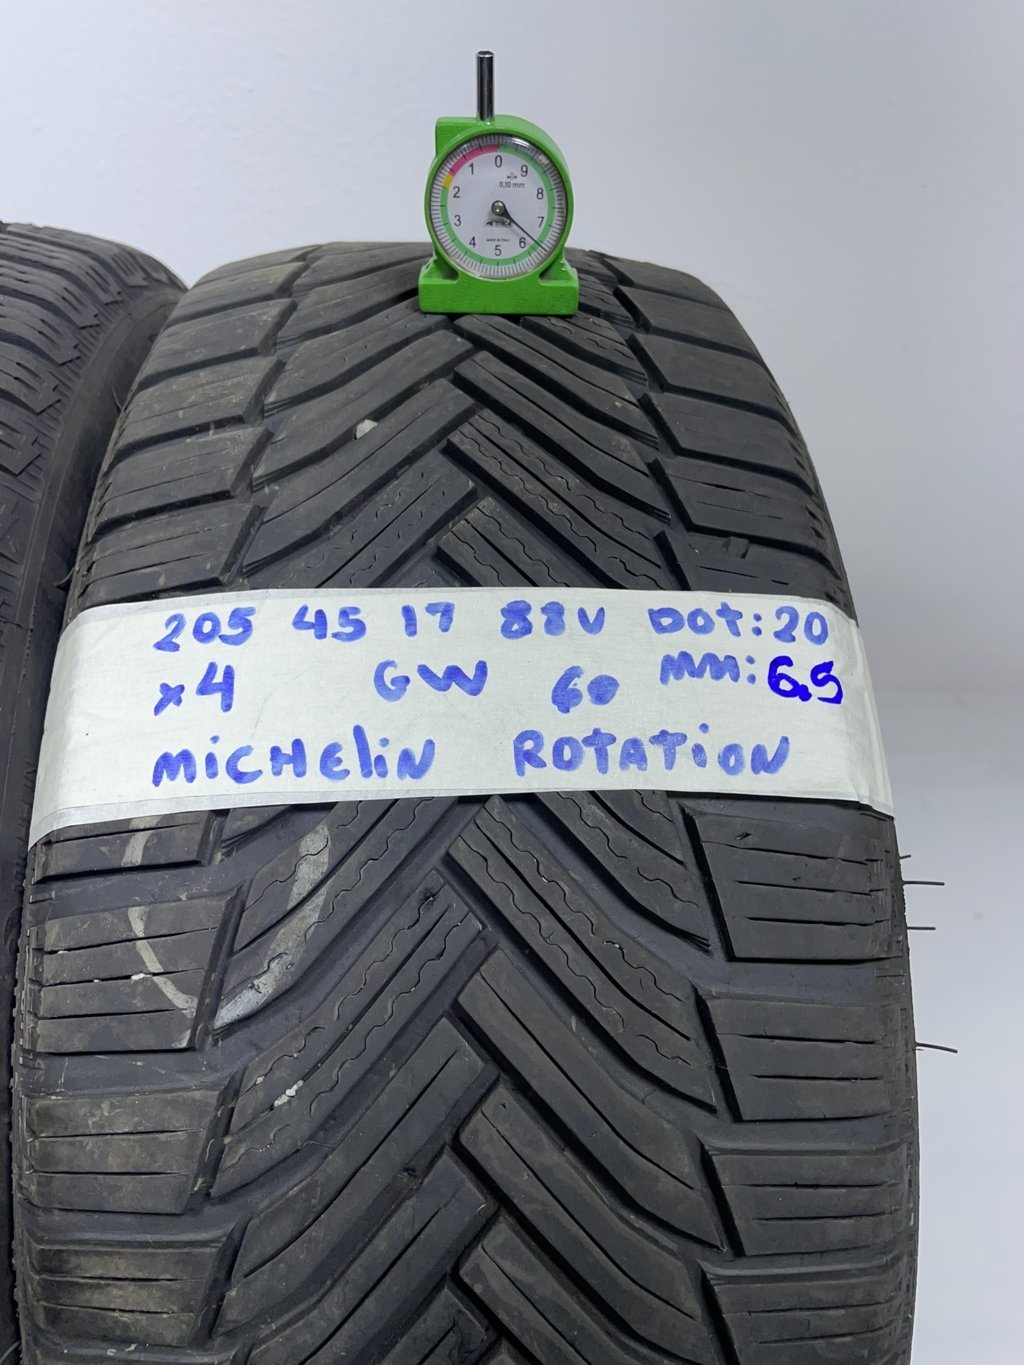 0
1 9
0,10 mm
2 8
3 7
4 6
5
MADE IN ITALY
205 45 17 88V DOT: 20
x4 GW 60 MM: 6.5
MICHELIN ROTATION